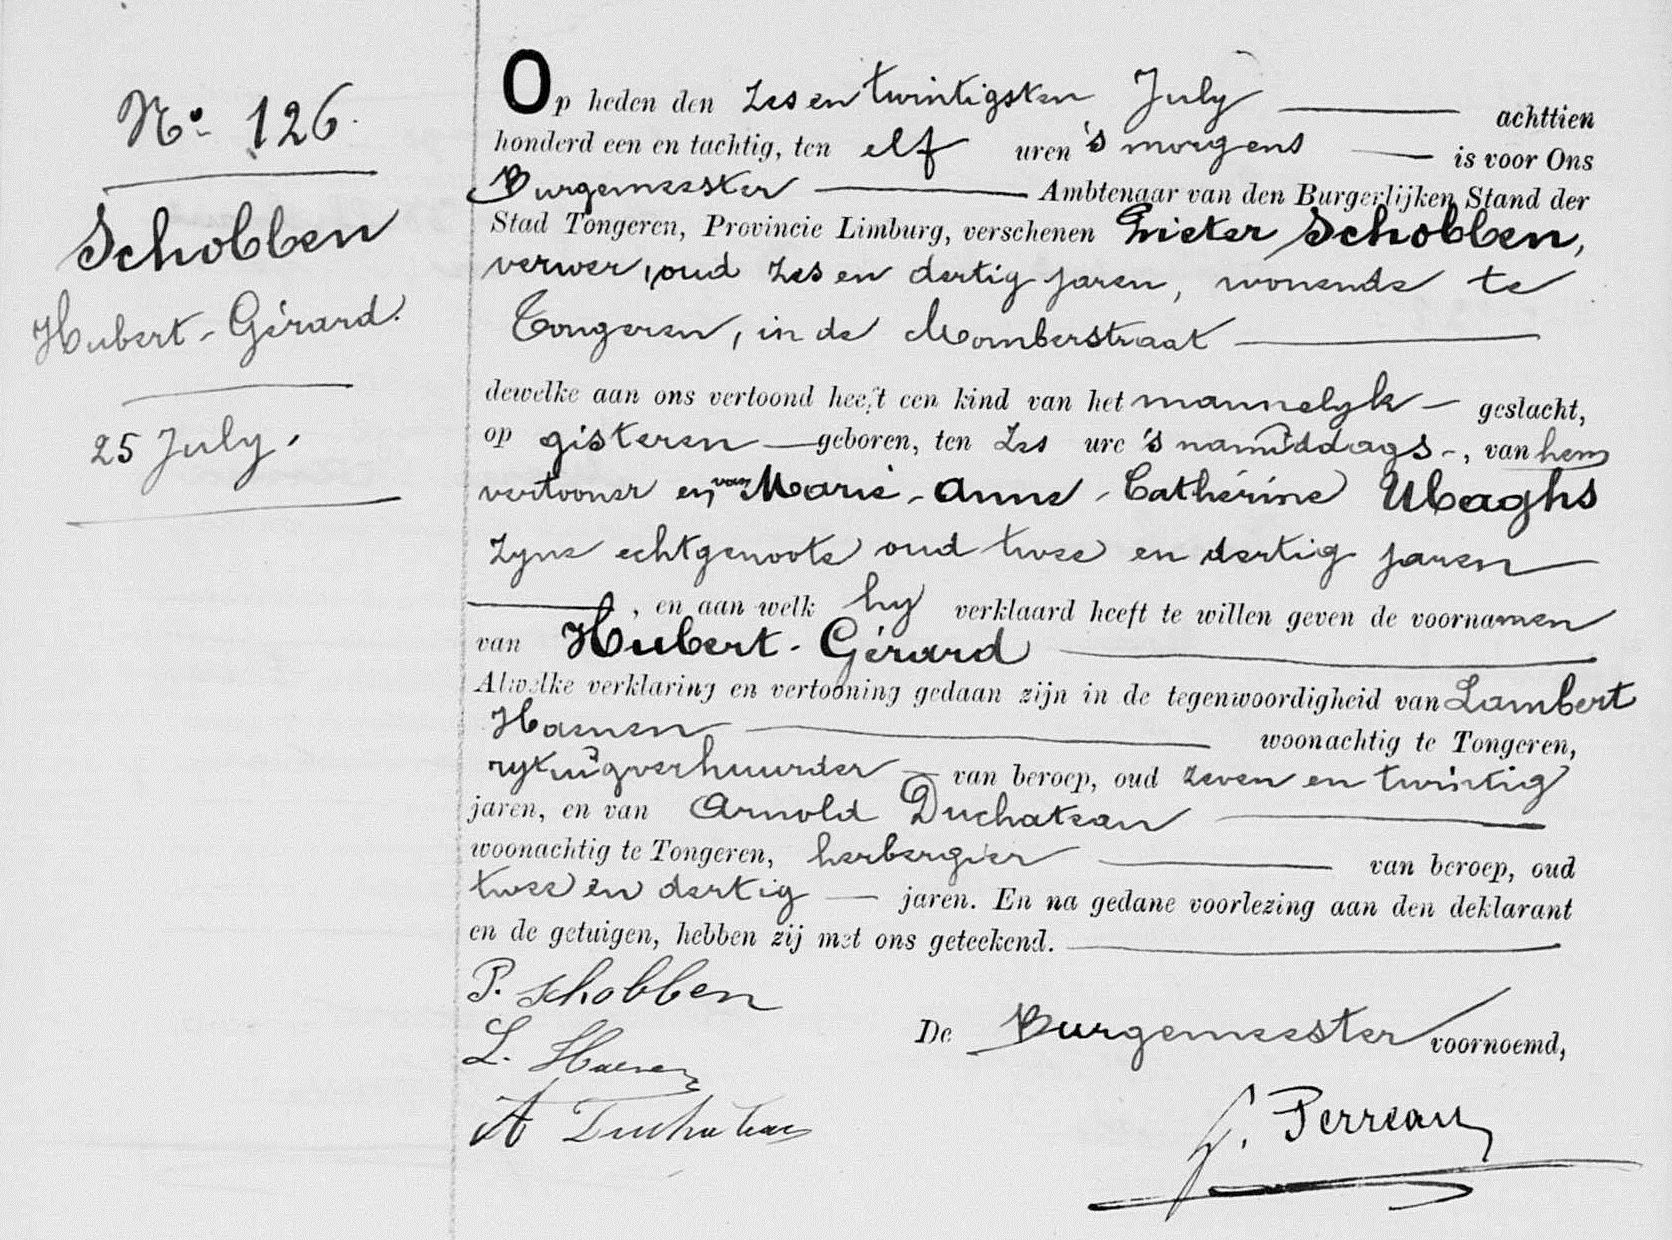 No. 126.
Schobben
Hubert-Gérard.
25 July.
Op heden den zes en twintigsten July achttien
honderd een en tachtig, ten elf uren 's morgens is voor Ons
Burgemeester Ambtenaar van den Burgerlijken Stand der
Stad Tongeren, Provincie Limburg, verschenen Pieter Schobben,
verwer, oud zes en dertig jaren, wonende te
Tongeren, in de Momberstraat
dewelke aan ons vertoond heeft een kind van het mannelyk geslacht,
op gisteren geboren, ten zes ure 's namiddags, van hem
vertooner en van Marie-Anne-Cathérine Ubaghs
zyne echtgenoote oud twee en dertig jaren
, en aan welk hy verklaard heeft te willen geven de voornamen
van Hubert-Gérard
Alwelke verklaring en vertooning gedaan zijn in de tegenwoordigheid van Lambert
Haenen woonachtig te Tongeren,
rytuigverhuurder van beroep, oud zeven en twintig
jaren, en van Arnold Duchateau
woonachtig te Tongeren, herbergier van beroep, oud
twee en dertig jaren. En na gedane voorlezing aan den deklarant
en de getuigen, hebben zij met ons geteekend.
P. Schobben
L. Haenen
A Duchateau
De Burgemeester voornoemd,
Perreau